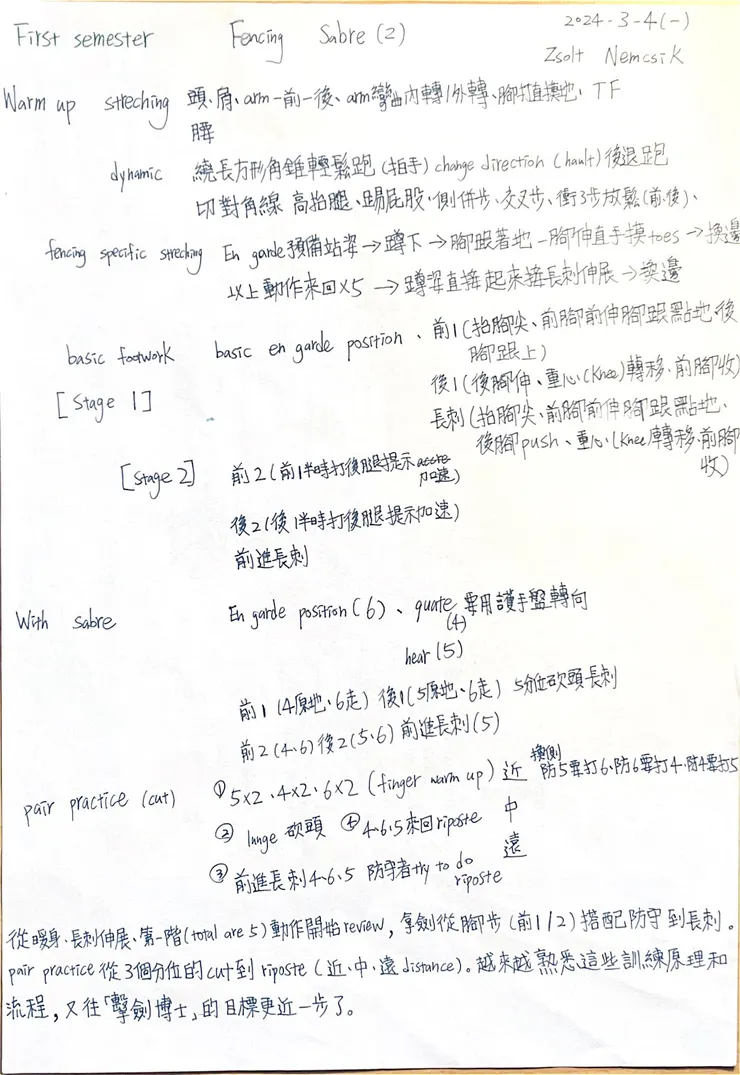 First semester Fencing Sabre (2) 2024-3-4(一)
Zsolt Nemcsik
Warm up streching 頭、肩、arm一前一後、arm彎曲內轉/外轉、腳打直摸地、TF
腰
dynamic 繞長方形角錐輕鬆跑 (拍手) change direction (hault) 後退跑
切對角線 高抬腿、踢屁股、側併步、交叉步、衝3步放鬆(前、後)、
fencing specific streching En garde預備站姿→蹲下→腳跟著地一腳伸直手摸toes→換邊
以上動作來回x5 →蹲姿直接起來接長刺伸展→換邊
basic footwork basic en garde position、前1(抬腳尖、前腳前伸腳跟點地、後
腳跟上)
後1(後腳伸、重心(Knee)轉移、前腳收)
[Stage 1] 長刺(抬腳尖、前腳前伸腳跟點地、
後腳push、重心(Knee)轉移、前腳
收)
[Stage 2] 前2(前1半時打後腿提示
加速)
後2(後1半時打後腿提示加速)
前進長刺
With sabre En garde position(6)、quate 要用護手盤轉向
(4)
hear(5)
前1(4原地、6走) 後1(5原地、6走) 5分位砍頭長刺
前2(4、6)後2(5、6)前進長刺(5)
pair practice (cut) ①5x2、4x2、6x2 (finger warm up) 近 換側
防5要打6、防6要打4、防4要打5
② lunge 砍頭 ④4、6、5來回riposte 中
遠
③前進長刺4、6、5 防守者try to do
riposte
從暖身、長刺伸展、第一階(total are 5)動作開始review，拿劍從腳步(前1/2)搭配防守到長刺。
pair practice從3個分位的cut到riposte(近、中、遠distance)。越來越熟悉這些訓練原理和
流程，又往「擊劍博士」的目標更近一步了。